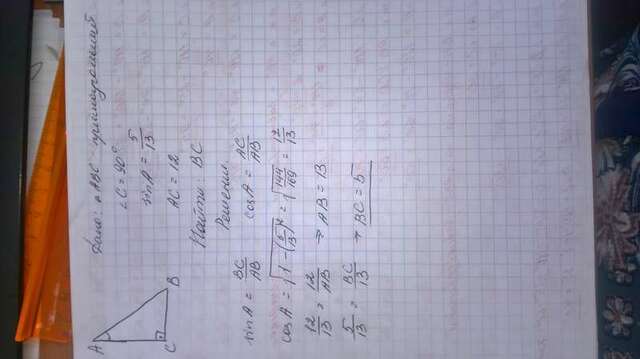 Дано: △ABC прямоугольный
∠C = 90°
sinA = 5/13
AC = 12
Найти BC
Решение
A
B
C
sinA = BC/AB   cosA = AC/AB
cosA = √(1-(5/13)²) = √(144/169) = 12/13
12/13 = 12/AB → AB = 13
5/13 = BC/13 → BC = 5